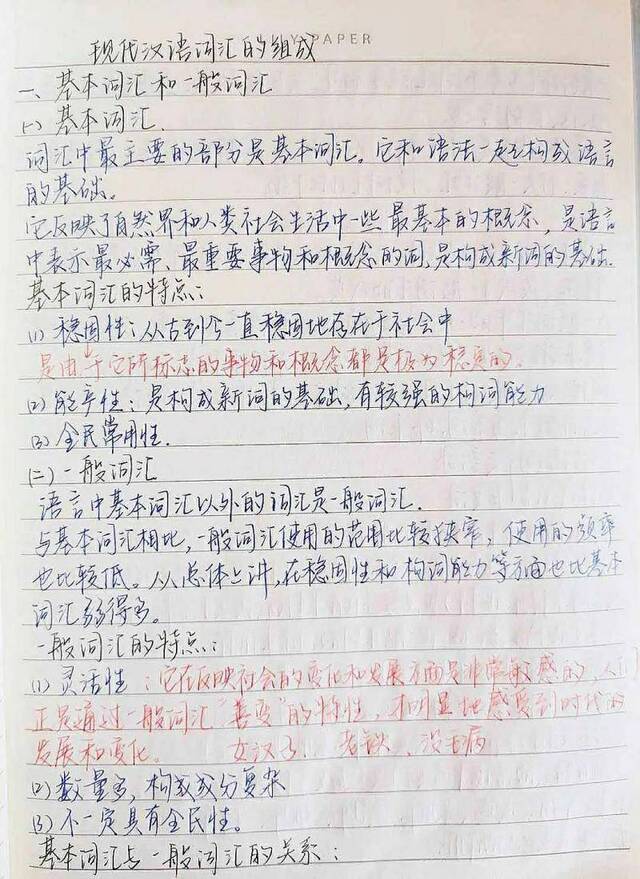 PAPER
现代汉语词汇的组成
一、基本词汇和一般词汇
(一) 基本词汇.
词汇中最主要的部分是基本词汇。它和语法一起构成语言
的基础。
它反映了自然界和人类社会生活中一些最基本的概念，是语言
中表示最必需、最重要事物和概念的词,是构成新词的基础.
基本词汇的特点：
(1) 稳固性：从古到今一直稳固地存在于社会中
是由于它所标志的事物和概念都是极为稳定的.
(2) 能产性：是构成新词的基础,有较强的构词能力
(3) 全民常用性.
(二) 一般词汇
语言中基本词汇以外的词汇是一般词汇.
与基本词汇相比,一般词汇使用的范围比较狭窄，使用的频率
也比较低。从总体上讲,在稳固性和构词能力等方面也比基本
词汇弱得多。
一般词汇的特点：
(1) 灵活性：它在反映社会的变化和发展方面是非常敏感的,人们
正是通过一般词汇"善变"的特性，才明显地感受到时代的
发展和变化。 女汉子、老铁、没毛病
(2) 数量多,构成成分复杂
(3) 不一定具有全民性。
基本词汇与一般词汇的关系：